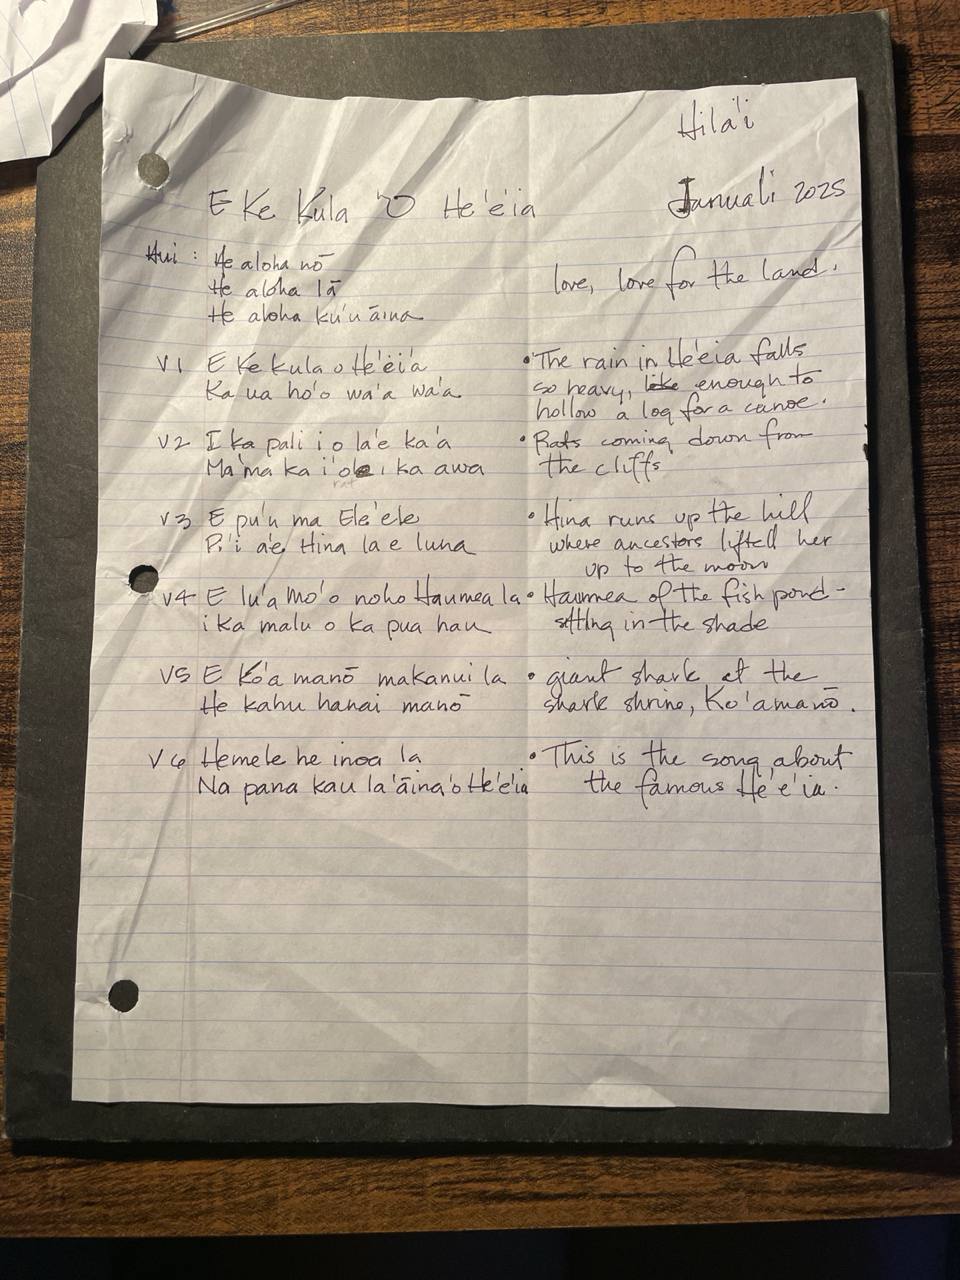 Hila'i
E Ke Kula 'O He'eia
Januali 2025
Hui : He aloha nō
He aloha lā
He aloha ku'u āina
love, love for the land.
V1 E Ke kula o He'ei'a
Ka ua ho'o wa'a wa'a
• The rain in He'eia falls
so heavy, like enough to
hollow a log for a canoe.
V2 I ka pali i o la'e ka'a
Ma'ma ka i'ole i ka awa
rat
• Rats coming down from
the cliffs
V3 E pu'u ma Ele'ele
Pi'i a'e Hina la e luna
• Hina runs up the hill
where ancestors lifted her
up to the moon
V4 E lu'a Mo'o noho Haumea la
i ka malu o ka pua hau
• Haumea of the fish pond -
sitting in the shade
V5 E Ko'a manō makanui la
He kahu hanai manō
• giant shark at the
shark shrine, Ko'amanō.
V6 He mele he inoa la
Na pana kau la 'āina 'o He'e'ia
• This is the song about
the famous He'e'ia.